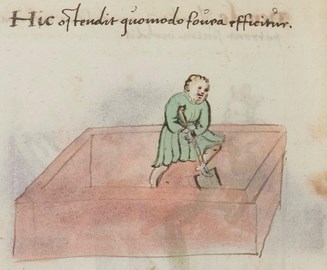 Hic ostendit quomodo fovea efficitur.